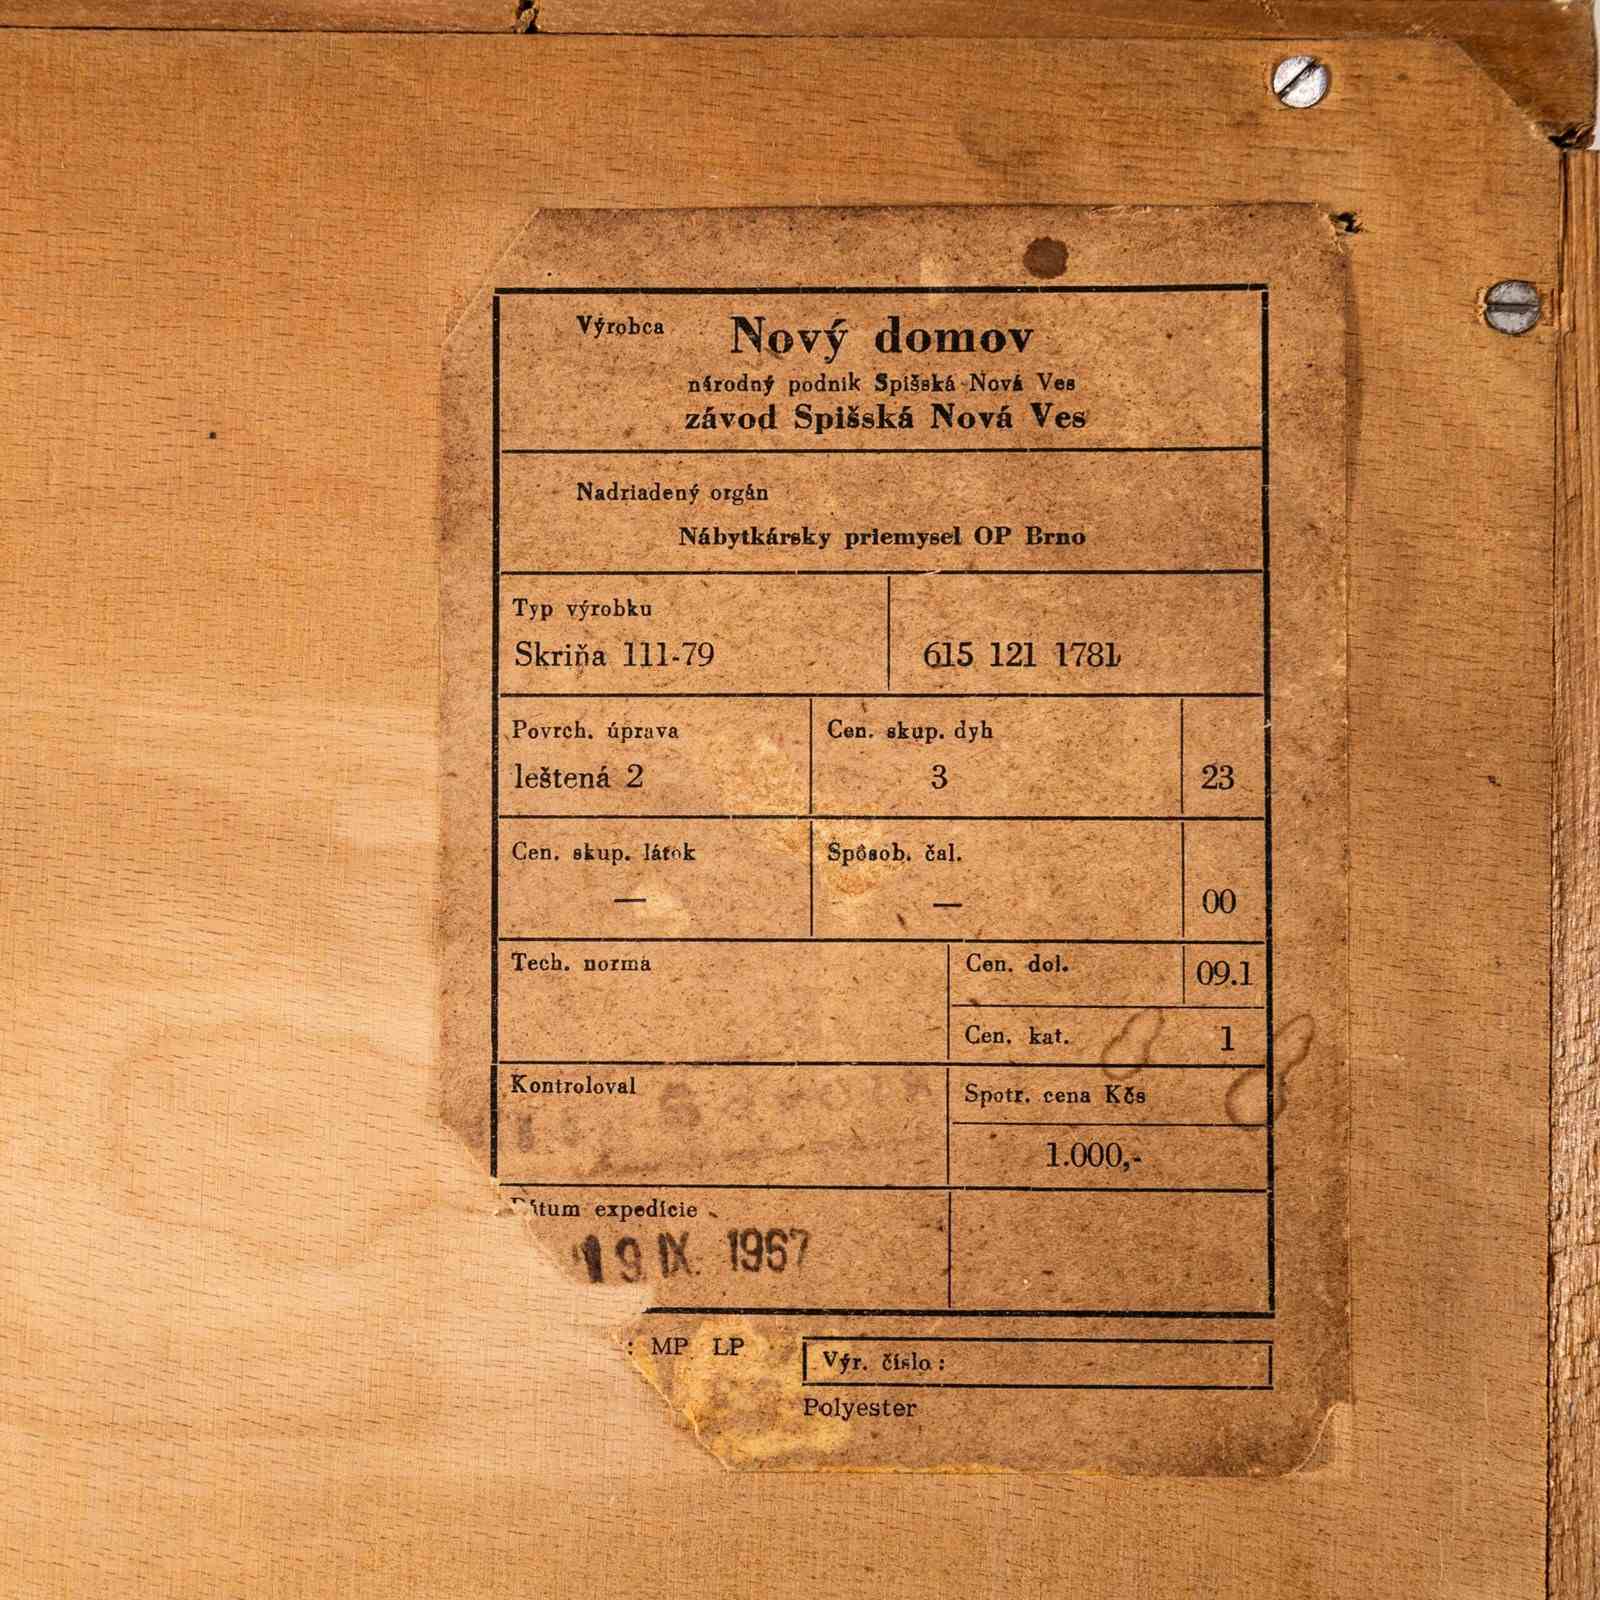 Výrobca Nový domov
národný podnik Spišská Nová Ves
závod Spišská Nová Ves
Nadriadený orgán
Nábytkársky priemysel OP Brno
Typ výrobku
Skriňa 111-79 615 121 1781
Povrch. úprava Cen. skup. dyh
leštená 2 3 23
Cen. skup. látok Spôsob. čal.
— — 00
Tech. norma Cen. dol. 09.1
Cen. kat. 1
Kontroloval Spotr. cena Kčs
1.000,-
Dátum expedície
19 IX. 1967
: MP LP Výr. číslo :
Polyester